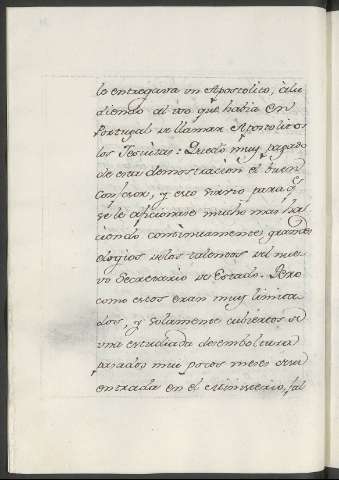 le entregava un Apostolico, alu
diendo al uso que habia en
Portugal de llamar Apostolicos
los Jesuitas: Quedó muy pagado
de esta demostracion el buen
Confesor, y esto sirvio para q.e
se le aficionase mucho mas ha
ciendo continuamente grandes
elogios de los talentos del nue
vo Secretario de Estado. Pero
como estos eran muy limita
dos, y solamente cubiertos de
una estudiada desemboltura
pasados muy pocos meses de su
entrada en el Ministerio, fal